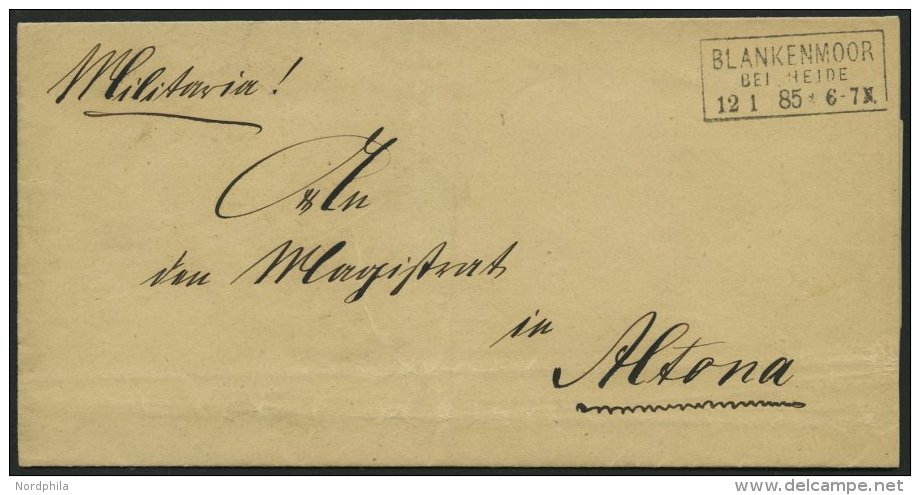 Militaria!
BLANKENMOOR
BEI HEIDE
12 1 85 * 6-7 N.
An
den Magistrat
in
Altona
Nordphila
delcampe.net